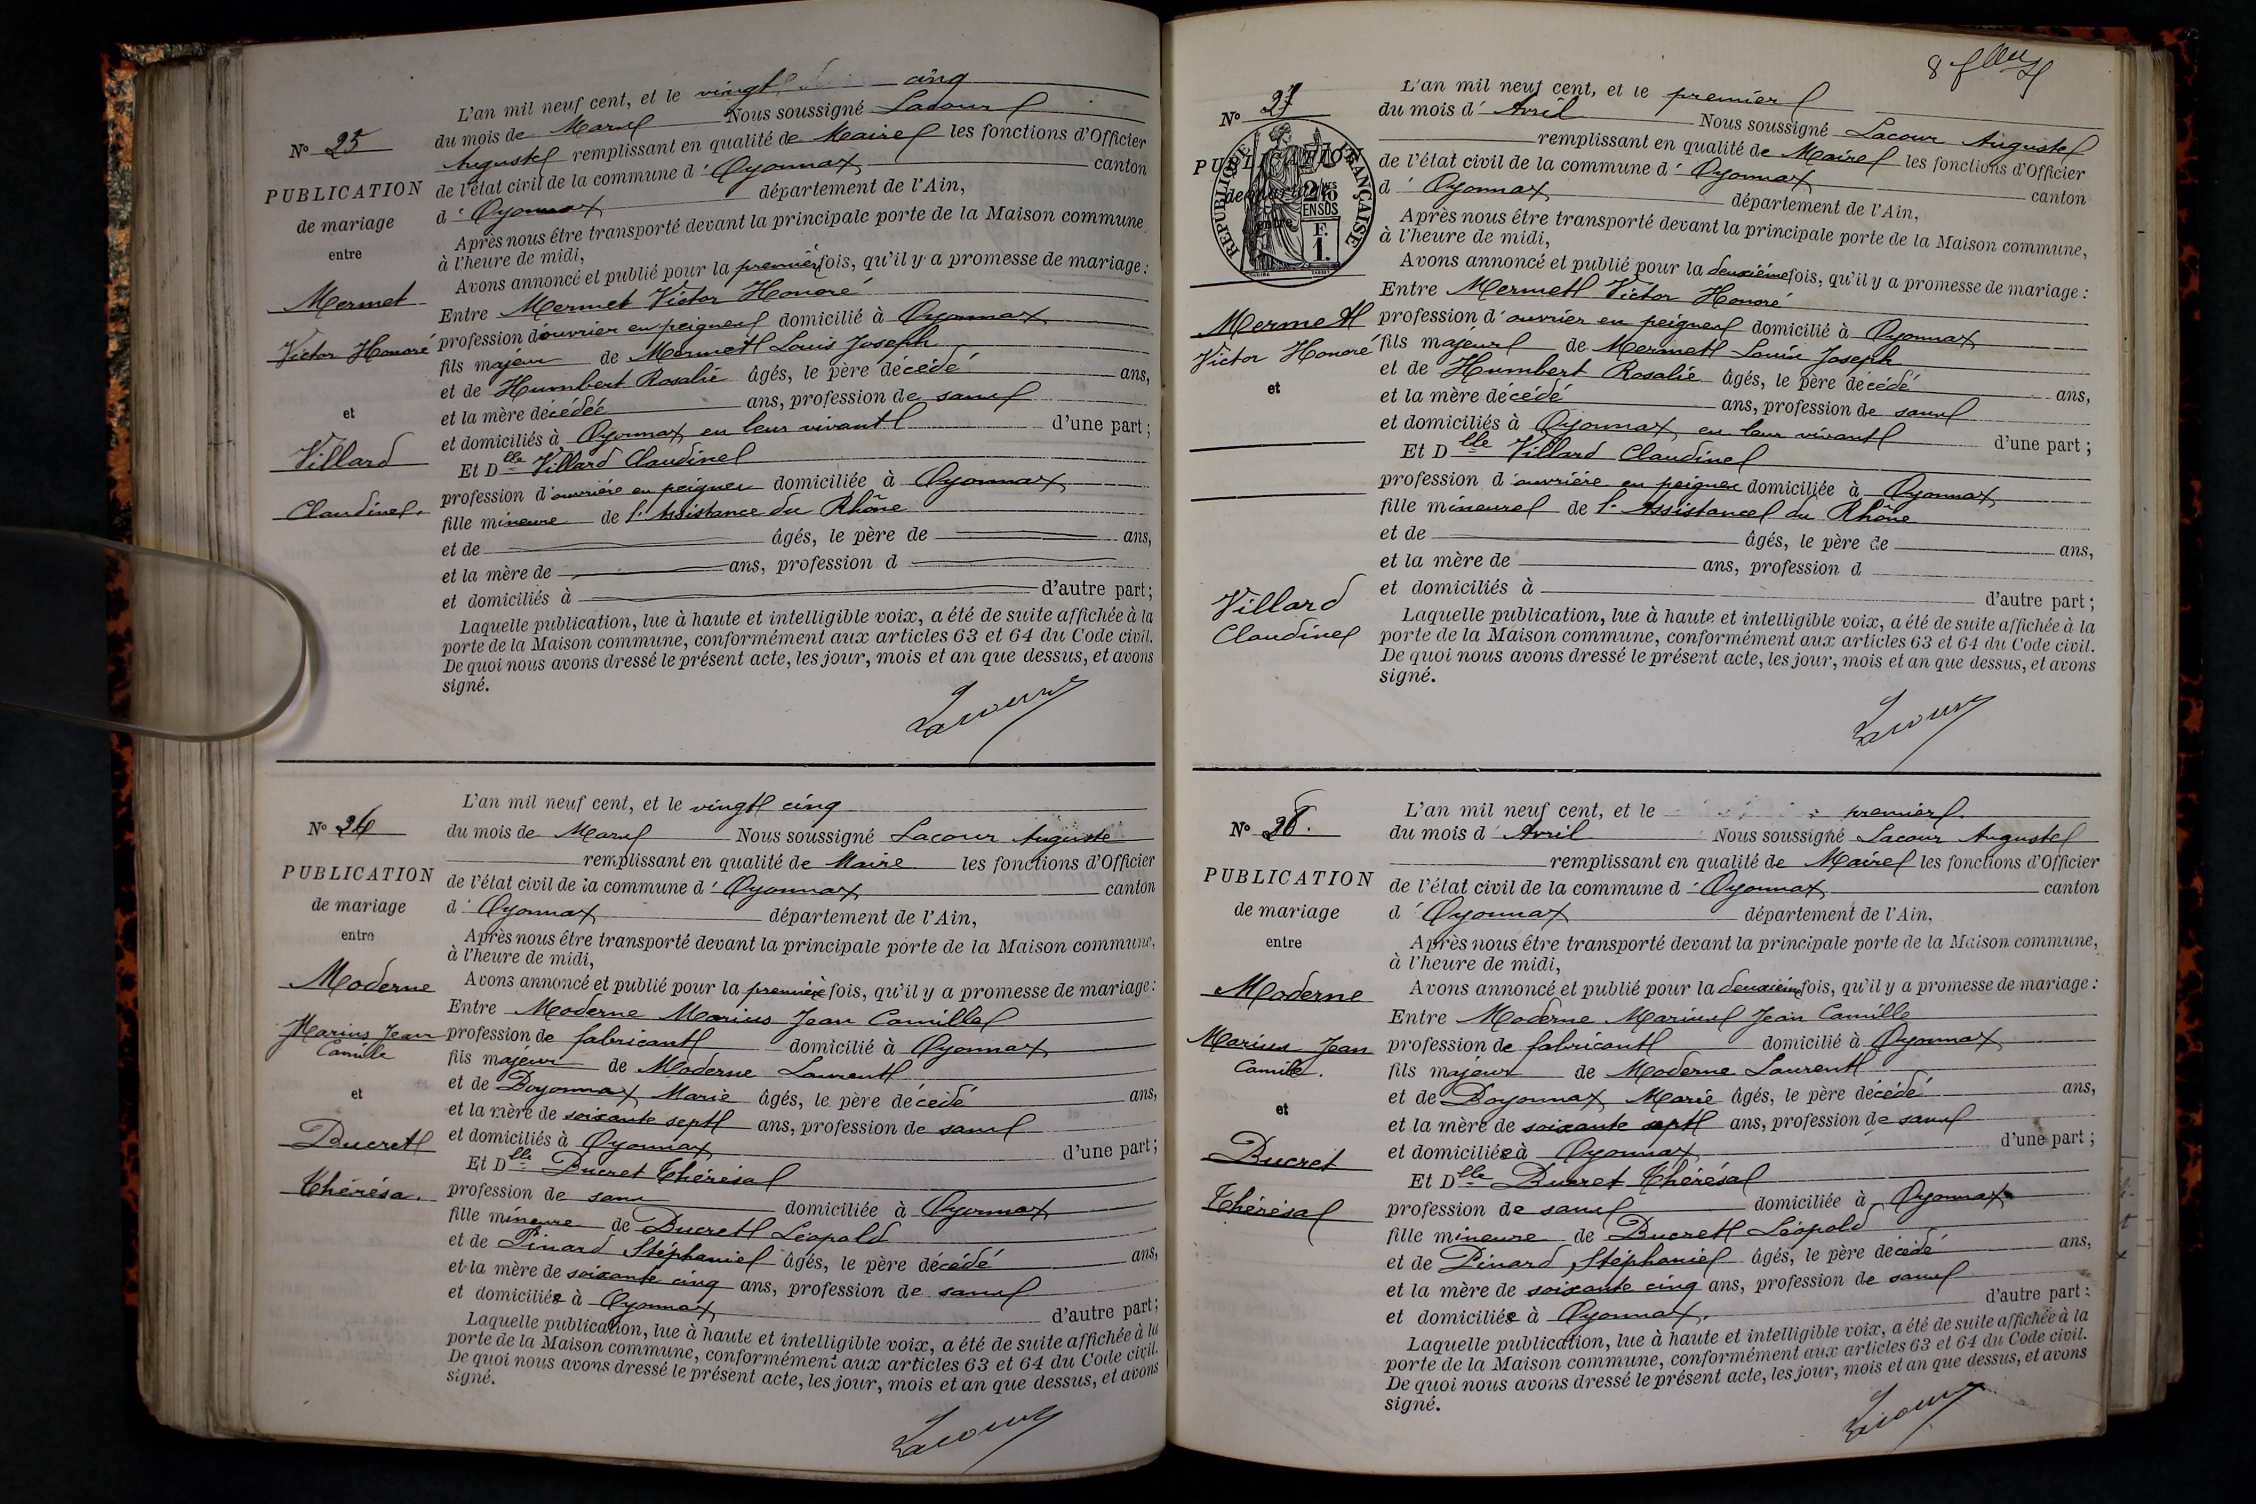 N° 25
PUBLICATION
de mariage
entre
Mermet
Victor Honoré
et
Villard
Claudine.
L'an mil neuf cent, et le vingt cinq
du mois de Mars Nous soussigné Lacour
Auguste remplissant en qualité de Maire les fonctions d'Officier
de l'état civil de la commune d'Oyonnax canton
d'Oyonnax département de l'Ain,
Après nous être transporté devant la principale porte de la Maison commune
à l'heure de midi,
Avons annoncé et publié pour la première fois, qu'il y a promesse de mariage :
Entre Mermet Victor Honoré
profession d'ouvrier en peignes domicilié à Oyonnax
fils majeur de Mermet Louis Joseph
et de Humbert Rosalie âgés, le père décédé ans,
et la mère décédée ans, profession de sans
et domiciliés à Oyonnax en leur vivant d'une part ;
Et Dlle Villard Claudine
profession d'ouvrière en peignes domiciliée à Oyonnax
fille mineure de l'Assistance du Rhône
et de âgés, le père de ans,
et la mère de ans, profession d
et domiciliés à d'autre part ;
Laquelle publication, lue à haute et intelligible voix, a été de suite affichée à la
porte de la Maison commune, conformément aux articles 63 et 64 du Code civil.
De quoi nous avons dressé le présent acte, les jour, mois et an que dessus, et avons
signé.
Lacour
N° 26
PUBLICATION
de mariage
entre
Moderne
Marius Jean
Camille
et
Ducret
Thérésa.
L'an mil neuf cent, et le vingt cinq
du mois de Mars Nous soussigné Lacour Auguste
remplissant en qualité de Maire les fonctions d'Officier
de l'état civil de la commune d'Oyonnax canton
d'Oyonnax département de l'Ain,
Après nous être transporté devant la principale porte de la Maison commune,
à l'heure de midi,
Avons annoncé et publié pour la première fois, qu'il y a promesse de mariage :
Entre Moderne Marius Jean Camille
profession de fabricant domicilié à Oyonnax
fils majeur de Moderne Laurent
et de Doyonnax Marie âgés, le père décédé ans,
et la mère de soixante sept ans, profession de sans
et domiciliés à Oyonnax d'une part ;
Et Dlle Ducret Thérésa
profession de sans domiciliée à Oyonnax
fille mineure de Ducret Léopold
et de Pinard Stéphanie âgés, le père décédé ans,
et la mère de soixante cinq ans, profession de sans
et domiciliée à Oyonnax d'autre part ;
Laquelle publication, lue à haute et intelligible voix, a été de suite affichée à la
porte de la Maison commune, conformément aux articles 63 et 64 du Code civil.
De quoi nous avons dressé le présent acte, les jour, mois et an que dessus, et avons
signé.
Lacour
8
N° 27
PUBLICATION
de mariage
entre
RÉPUBLIQUE FRANÇAISE
2/10 EN SUS
F.
1.
Mermet
Victor Honoré
et
Villard
Claudine
L'an mil neuf cent, et le premier
du mois d'Avril Nous soussigné Lacour Auguste
remplissant en qualité de Maire les fonctions d'Officier
de l'état civil de la commune d'Oyonnax canton
d'Oyonnax département de l'Ain,
Après nous être transporté devant la principale porte de la Maison commune,
à l'heure de midi,
Avons annoncé et publié pour la deuxième fois, qu'il y a promesse de mariage :
Entre Mermet Victor Honoré
profession d'ouvrier en peignes domicilié à Oyonnax
fils majeur de Mermet Louis Joseph
et de Humbert Rosalie âgés, le père décédé ans,
et la mère décédé ans, profession de sans
et domiciliés à Oyonnax en leur vivant d'une part ;
Et Dlle Villard Claudine
profession d'ouvrière en peignes domiciliée à Oyonnax
fille mineure de l'Assistance du Rhône
et de âgés, le père de ans,
et la mère de ans, profession d
et domiciliés à d'autre part ;
Laquelle publication, lue à haute et intelligible voix, a été de suite affichée à la
porte de la Maison commune, conformément aux articles 63 et 64 du Code civil.
De quoi nous avons dressé le présent acte, les jour, mois et an que dessus, et avons
signé.
Lacour
N° 28.
PUBLICATION
de mariage
entre
Moderne
Marius Jean
Camille.
et
Ducret
Thérésa
L'an mil neuf cent, et le premier.
du mois d'Avril Nous soussigné Lacour Auguste
remplissant en qualité de Maire les fonctions d'Officier
de l'état civil de la commune d'Oyonnax canton
d'Oyonnax département de l'Ain,
Après nous être transporté devant la principale porte de la Maison commune,
à l'heure de midi,
Avons annoncé et publié pour la deuxième fois, qu'il y a promesse de mariage :
Entre Moderne Marius Jean Camille
profession de fabricant domicilié à Oyonnax
fils majeur de Moderne Laurent
et de Doyonnax Marie âgés, le père décédé ans,
et la mère de soixante sept ans, profession de sans
et domiciliée à Oyonnax d'une part ;
Et Dlle Ducret Thérésa
profession de sans domiciliée à Oyonnax
fille mineure de Ducret Léopold
et de Pinard Stéphanie âgés, le père décédé ans,
et la mère de soixante cinq ans, profession de sans
et domiciliée à Oyonnax. d'autre part ;
Laquelle publication, lue à haute et intelligible voix, a été de suite affichée à la
porte de la Maison commune, conformément aux articles 63 et 64 du Code civil.
De quoi nous avons dressé le présent acte, les jour, mois et an que dessus, et avons
signé.
Lacour